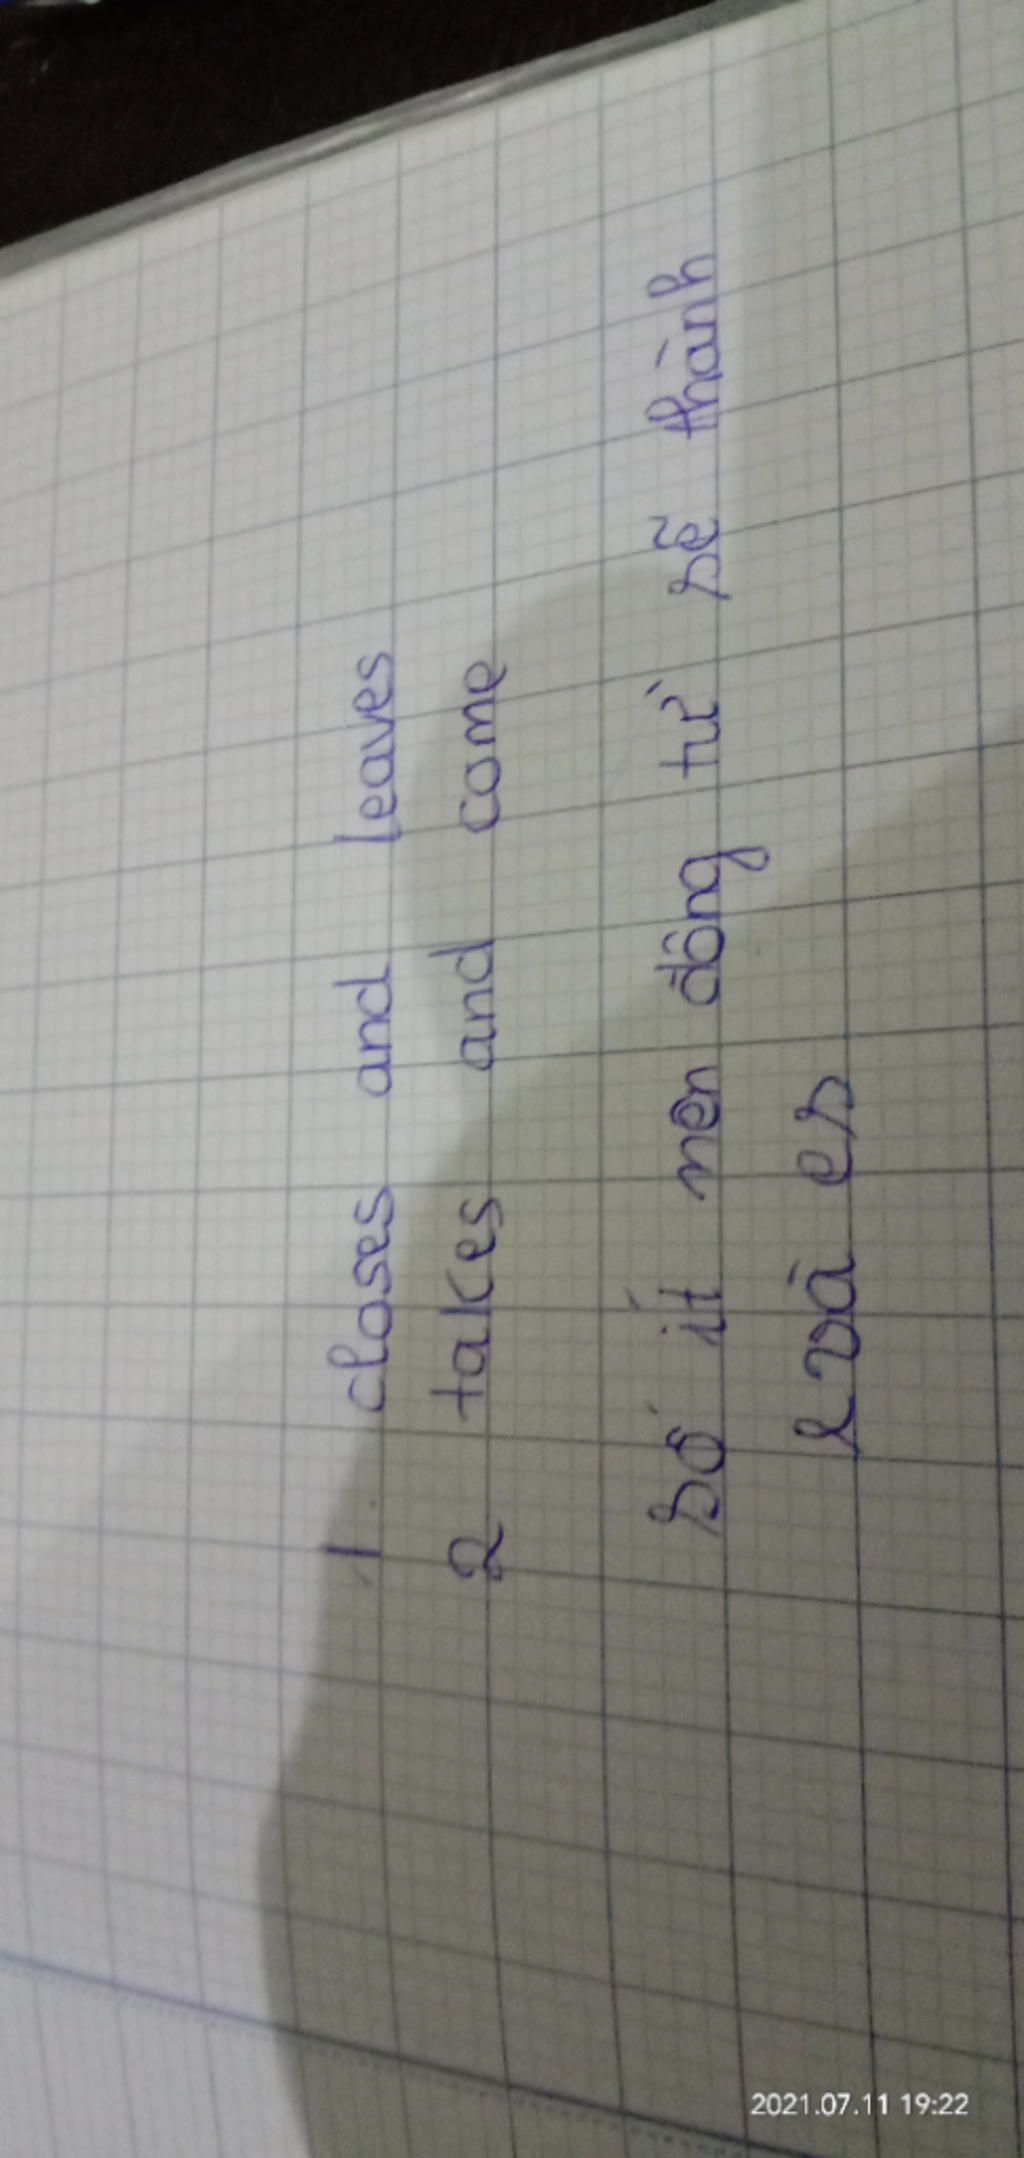 1 closes and leaves
2 takes and come
số ít nên động từ sẽ thành
s và es
2021.07.11 19:22